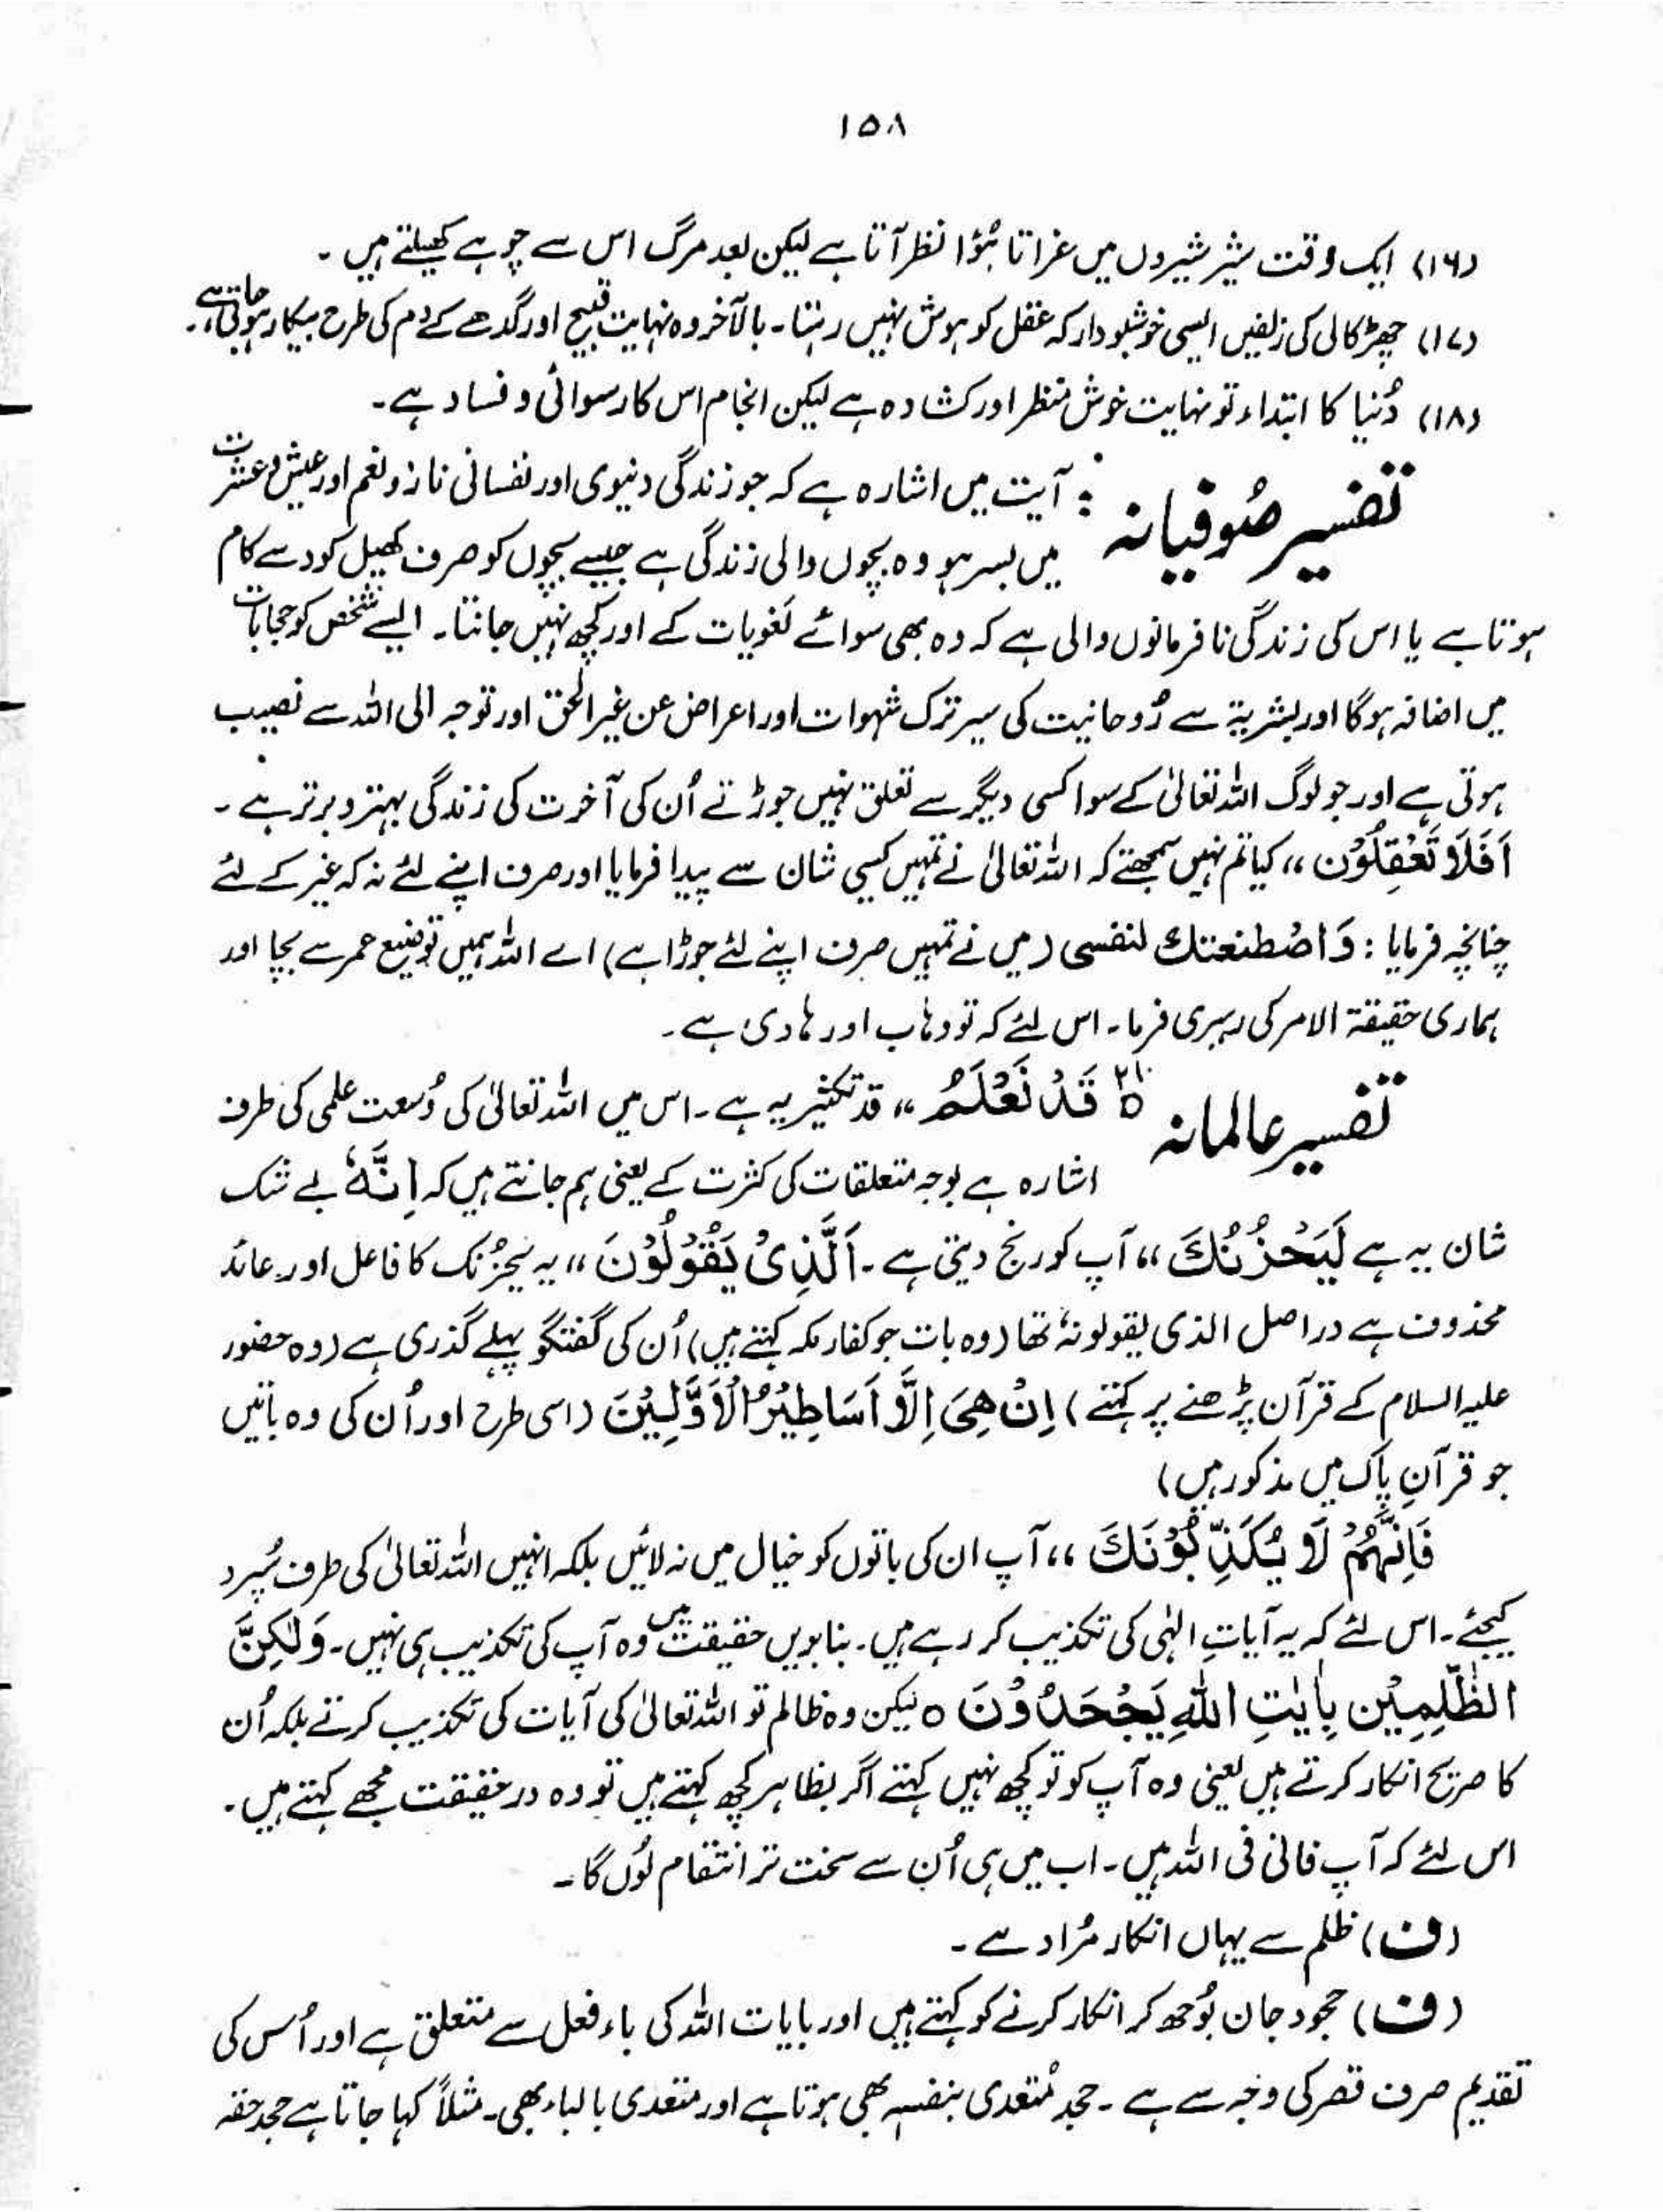 ۱۵۸
(۱۶) ایک وقت شیر شیروں میں غراتا ہُؤا نظر آتا ہے لیکن بعد مرگ اس سے چوہے کھیلتے ہیں ۔
(۱۷) چھڑکالی کی زلفیں ایسی خوشبودار کہ عقل کو ہوش نہیں رہتا۔ بالآخر وہ نہایت قبیح اور گدھے کے دم کی طرح بیکار ہو جاتی ہے۔
(۱۸) دُنیا کا ابتداء تو نہایت خوش منظر اور کشادہ ہے لیکن انجام اس کا رسوائی و فساد ہے۔
تفسیر صُوفیانہ : آیت میں اشارہ ہے کہ جو زندگی دنیوی اور نفسانی ناز و نغم اور عیش و عشرت
میں بسر ہو وہ بچوں والی زندگی ہے جیسے بچوں کو صرف کھیل کود سے کام
ہوتا ہے یا اس کی زندگی نافرمانوں والی ہے کہ وہ بھی سوائے لَغویات کے اور کچھ نہیں جانتا۔ ایسے شخص کو حجابات
میں اضافہ ہوگا اور بشریۃ سے رُوحانیت کی سیر ترک شہوات اور اعراض عن غیر الحق اور توجہ الی اللہ سے نصیب
ہوتی ہے اور جو لوگ اللہ تعالیٰ کے سوا کسی دیگر سے تعلق نہیں جوڑتے اُن کی آخرت کی زندگی بہتر و برتر ہے ۔
اَفَلَا تَعْقِلُوْن ،، کیا تم نہیں سمجھتے کہ اللہ تعالیٰ نے تمہیں کیسی شان سے پیدا فرمایا اور صرف اپنے لئے نہ کہ غیر کے لئے
چنانچہ فرمایا : وَاصْطنعتك لنفسی (میں نے تمہیں صرف اپنے لئے جوڑا ہے) اے اللہ ہمیں توضیع عمر سے بچا اور
ہماری حقیقۃ الامر کی رہبری فرما۔ اس لئے کہ تو وہاب اور ہادی ہے۔
تفسیر عالمانہ ○ قَدْ نَعْلَمُ ،، قد تکثیریہ ہے۔ اس میں اللہ تعالیٰ کی وُسعت علمی کی طرف
اشارہ ہے بوجہ متعلقات کی کثرت کے یعنی ہم جانتے ہیں کہ اِنَّهٗ بے شک
شان یہ ہے لَيَحْزُنُكَ ،، آپ کو رنج دیتی ہے۔ اَلَّذِیْ يَقُوْلُوْنَ ،، یہ یحزنک کا فاعل اور عائد
محذوف ہے دراصل الذی یقولونہٗ تھا (وہ بات جو کفار مکہ کہتے ہیں) اُن کی گفتگو پہلے گذری ہے (وہ حضور
علیہ السلام کے قرآن پڑھنے پر کہتے) اِنْ هِیَ اِلَّا اَسَاطِيْرُ الْاَوَّلِيْنَ (اسی طرح اور اُن کی وہ باتیں
جو قرآنِ پاک میں مذکور ہیں)
فَاِنَّهُمْ لَا يُكَذِّبُوْنَكَ ،، آپ ان کی باتوں کو خیال میں نہ لائیں بلکہ انہیں اللہ تعالیٰ کی طرف سُپرد
کیجئے۔ اس لئے کہ یہ آیاتِ الٰہی کی تکذیب کر رہے ہیں۔ بنا بریں حقیقت میں وہ آپ کی تکذیب ہی نہیں۔ وَلٰكِنَّ
الظّٰلِمِيْن بِاٰيٰتِ اللّٰهِ يَجْحَدُوْنَ ○ لیکن وہ ظالم تو اللہ تعالیٰ کی آیات کی تکذیب کرتے بلکہ اُن
کا صریح انکار کرتے ہیں یعنی وہ آپ کو تو کچھ نہیں کہتے اگر بظاہر کچھ کہتے ہیں تو وہ در حقیقت مجھے کہتے ہیں۔
اس لئے کہ آپ فانی فی اللہ ہیں۔ اب میں ہی اُن سے سخت تر انتقام لُوں گا۔
(ف) ظلم سے یہاں انکار مُراد ہے۔
(ف) جحود جان بُوجھ کر انکار کرنے کو کہتے ہیں اور بایات اللہ کی باء فعل سے متعلق ہے اور اُس کی
تقدیم صرف قصر کی وجہ سے ہے ۔ جحد مُتعدی بنفسہٖ بھی ہوتا ہے اور متعدی بالباء بھی۔ مثلاً کہا جاتا ہے جحد حقہ